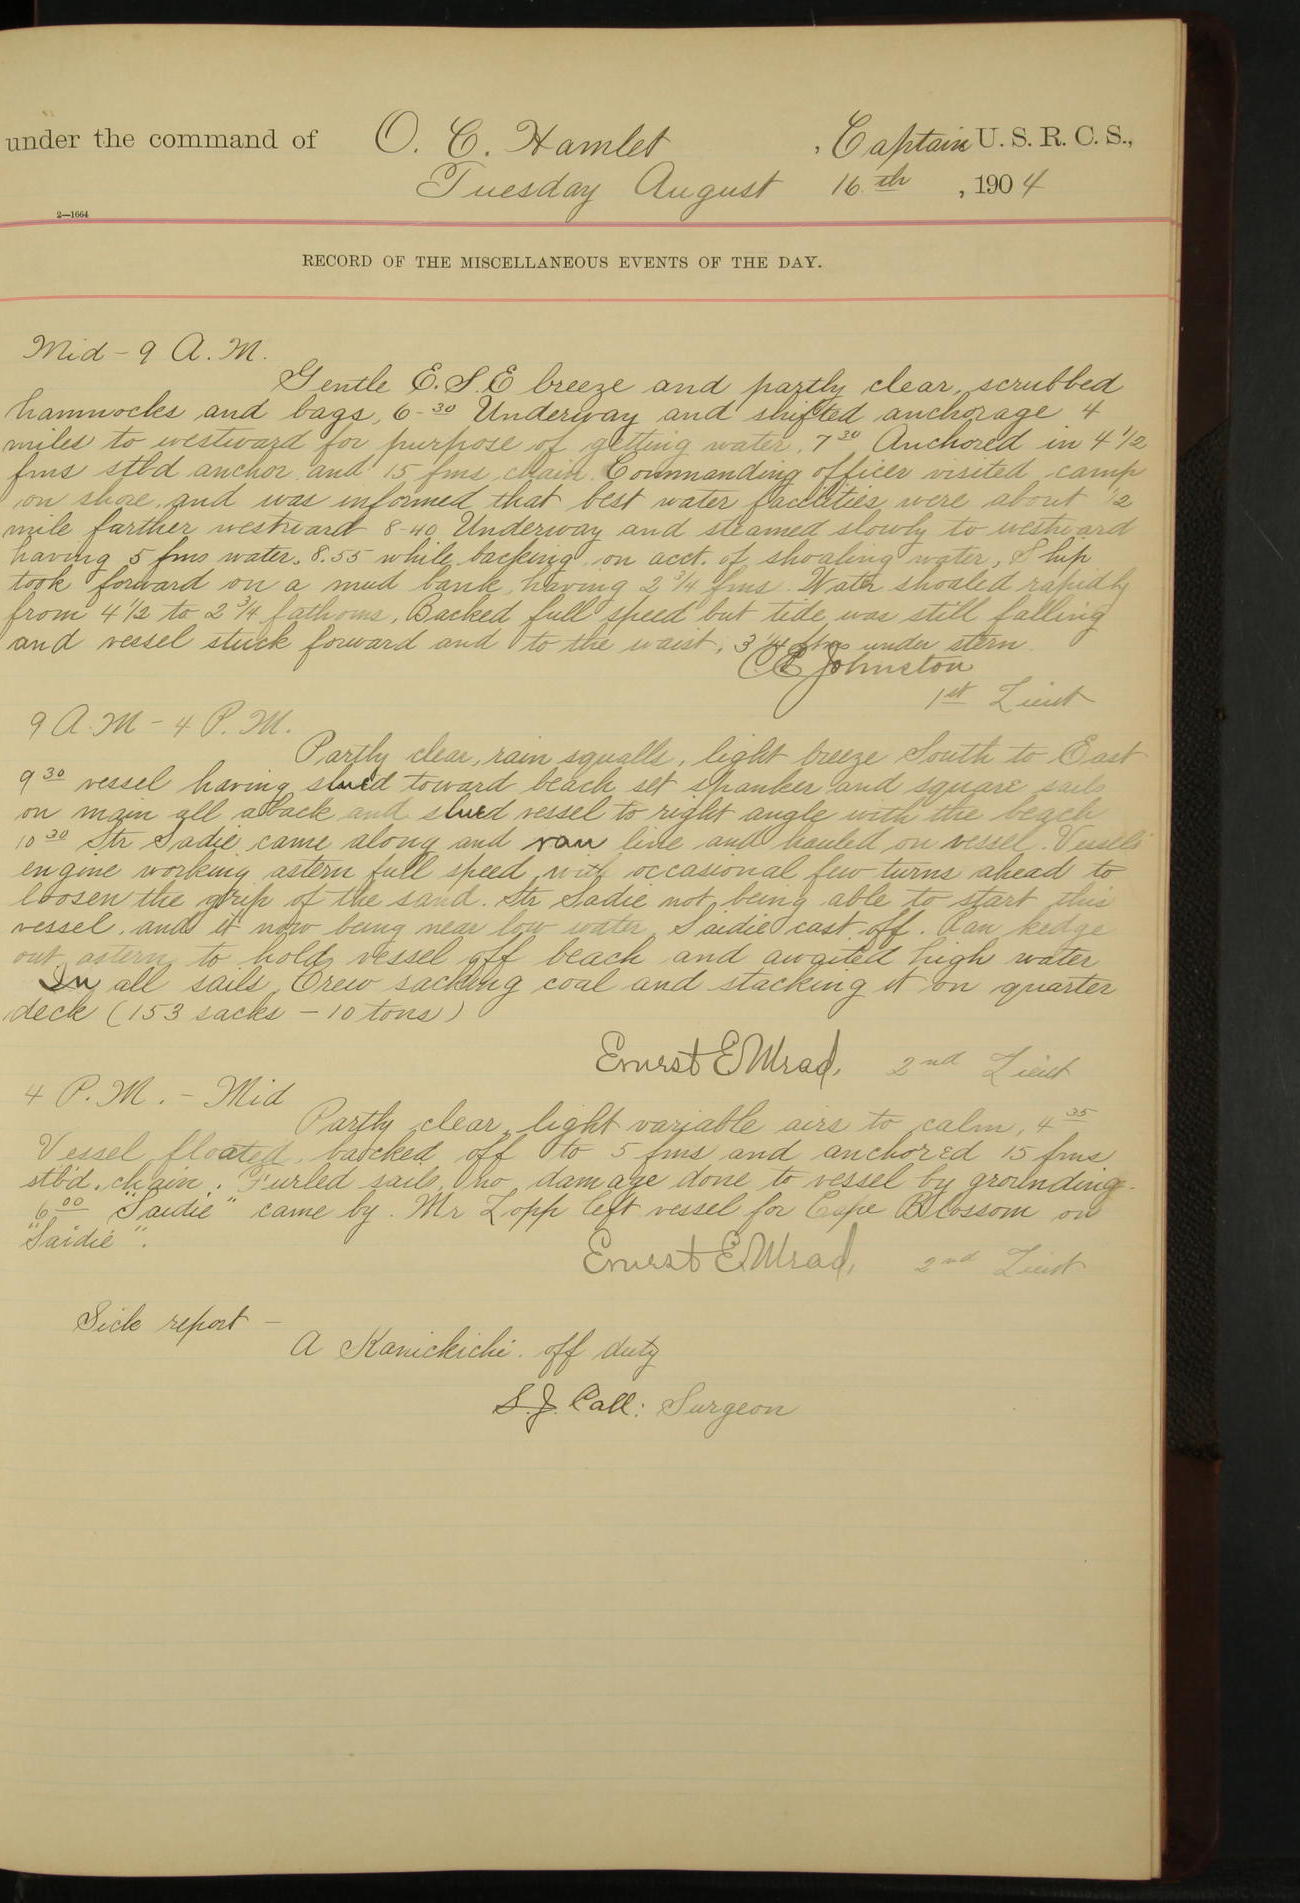 under the command of O. C. Hamlet , Captain U. S. R. C. S.,
Tuesday August 16th , 1904
2—1664
RECORD OF THE MISCELLANEOUS EVENTS OF THE DAY.
Mid - 9 A. M.
Gentle E.S.E breeze and partly clear, scrubbed
hammocks and bags, 6-30 Underway and shifted anchorage 4
miles to westward for purpose of getting water. 7 30 Anchored in 4 1/2
fms stbd anchor and 15 fms chain. Commanding officer visited camp
on shore and was informed that best water facilities were about 1/2
mile farther westward 8-40 Underway and steamed slowly to westward
having 5 fms water. 8.55 while backing on acct. of shoaling water, Ship
took forward on a mud bank having 2 3/4 fms. Water shoaled rapidly
from 4 1/2 to 2 3/4 fathoms, Backed full speed but tide was still falling
and vessel stuck forward and to the waist, 3 1/4 fms under stern.
C E Johnston
1st Lieut
9 A.M - 4 P. M.
Partly clear, rain squalls, light breeze South to East
9 30 vessel having slued toward beach set spanker and square sails
on main all aback and slued vessel to right angle with the beach
10 30 Str Sadie came along and ran line and hauled on vessel. Vessels
engine working astern full speed with occasional few turns ahead to
loosen the grip of the sand. Str Sadie not being able to start this
vessel, and it now being near low water, Saidie cast off. Ran kedge
out astern to hold vessel off beach and awaited high water
In all sails, Crew sacking coal and stacking it on quarter
deck (153 sacks - 10 tons)
Ernest E Mead, 2nd Lieut
4 P. M. - Mid
Partly clear, light variable airs to calm, 4 35
Vessel floated, backed off to 5 fms and anchored 15 fms
stb'd. chain. Furled sails, no damage done to vessel by grounding.
6 00 "Saidie" came by. Mr Lopp left vessel for Cape Blossom on
"Saidie".
Ernest E Mead, 2nd Lieut
Sick report -
A Kanickichi. off duty
S. J. Call: Surgeon